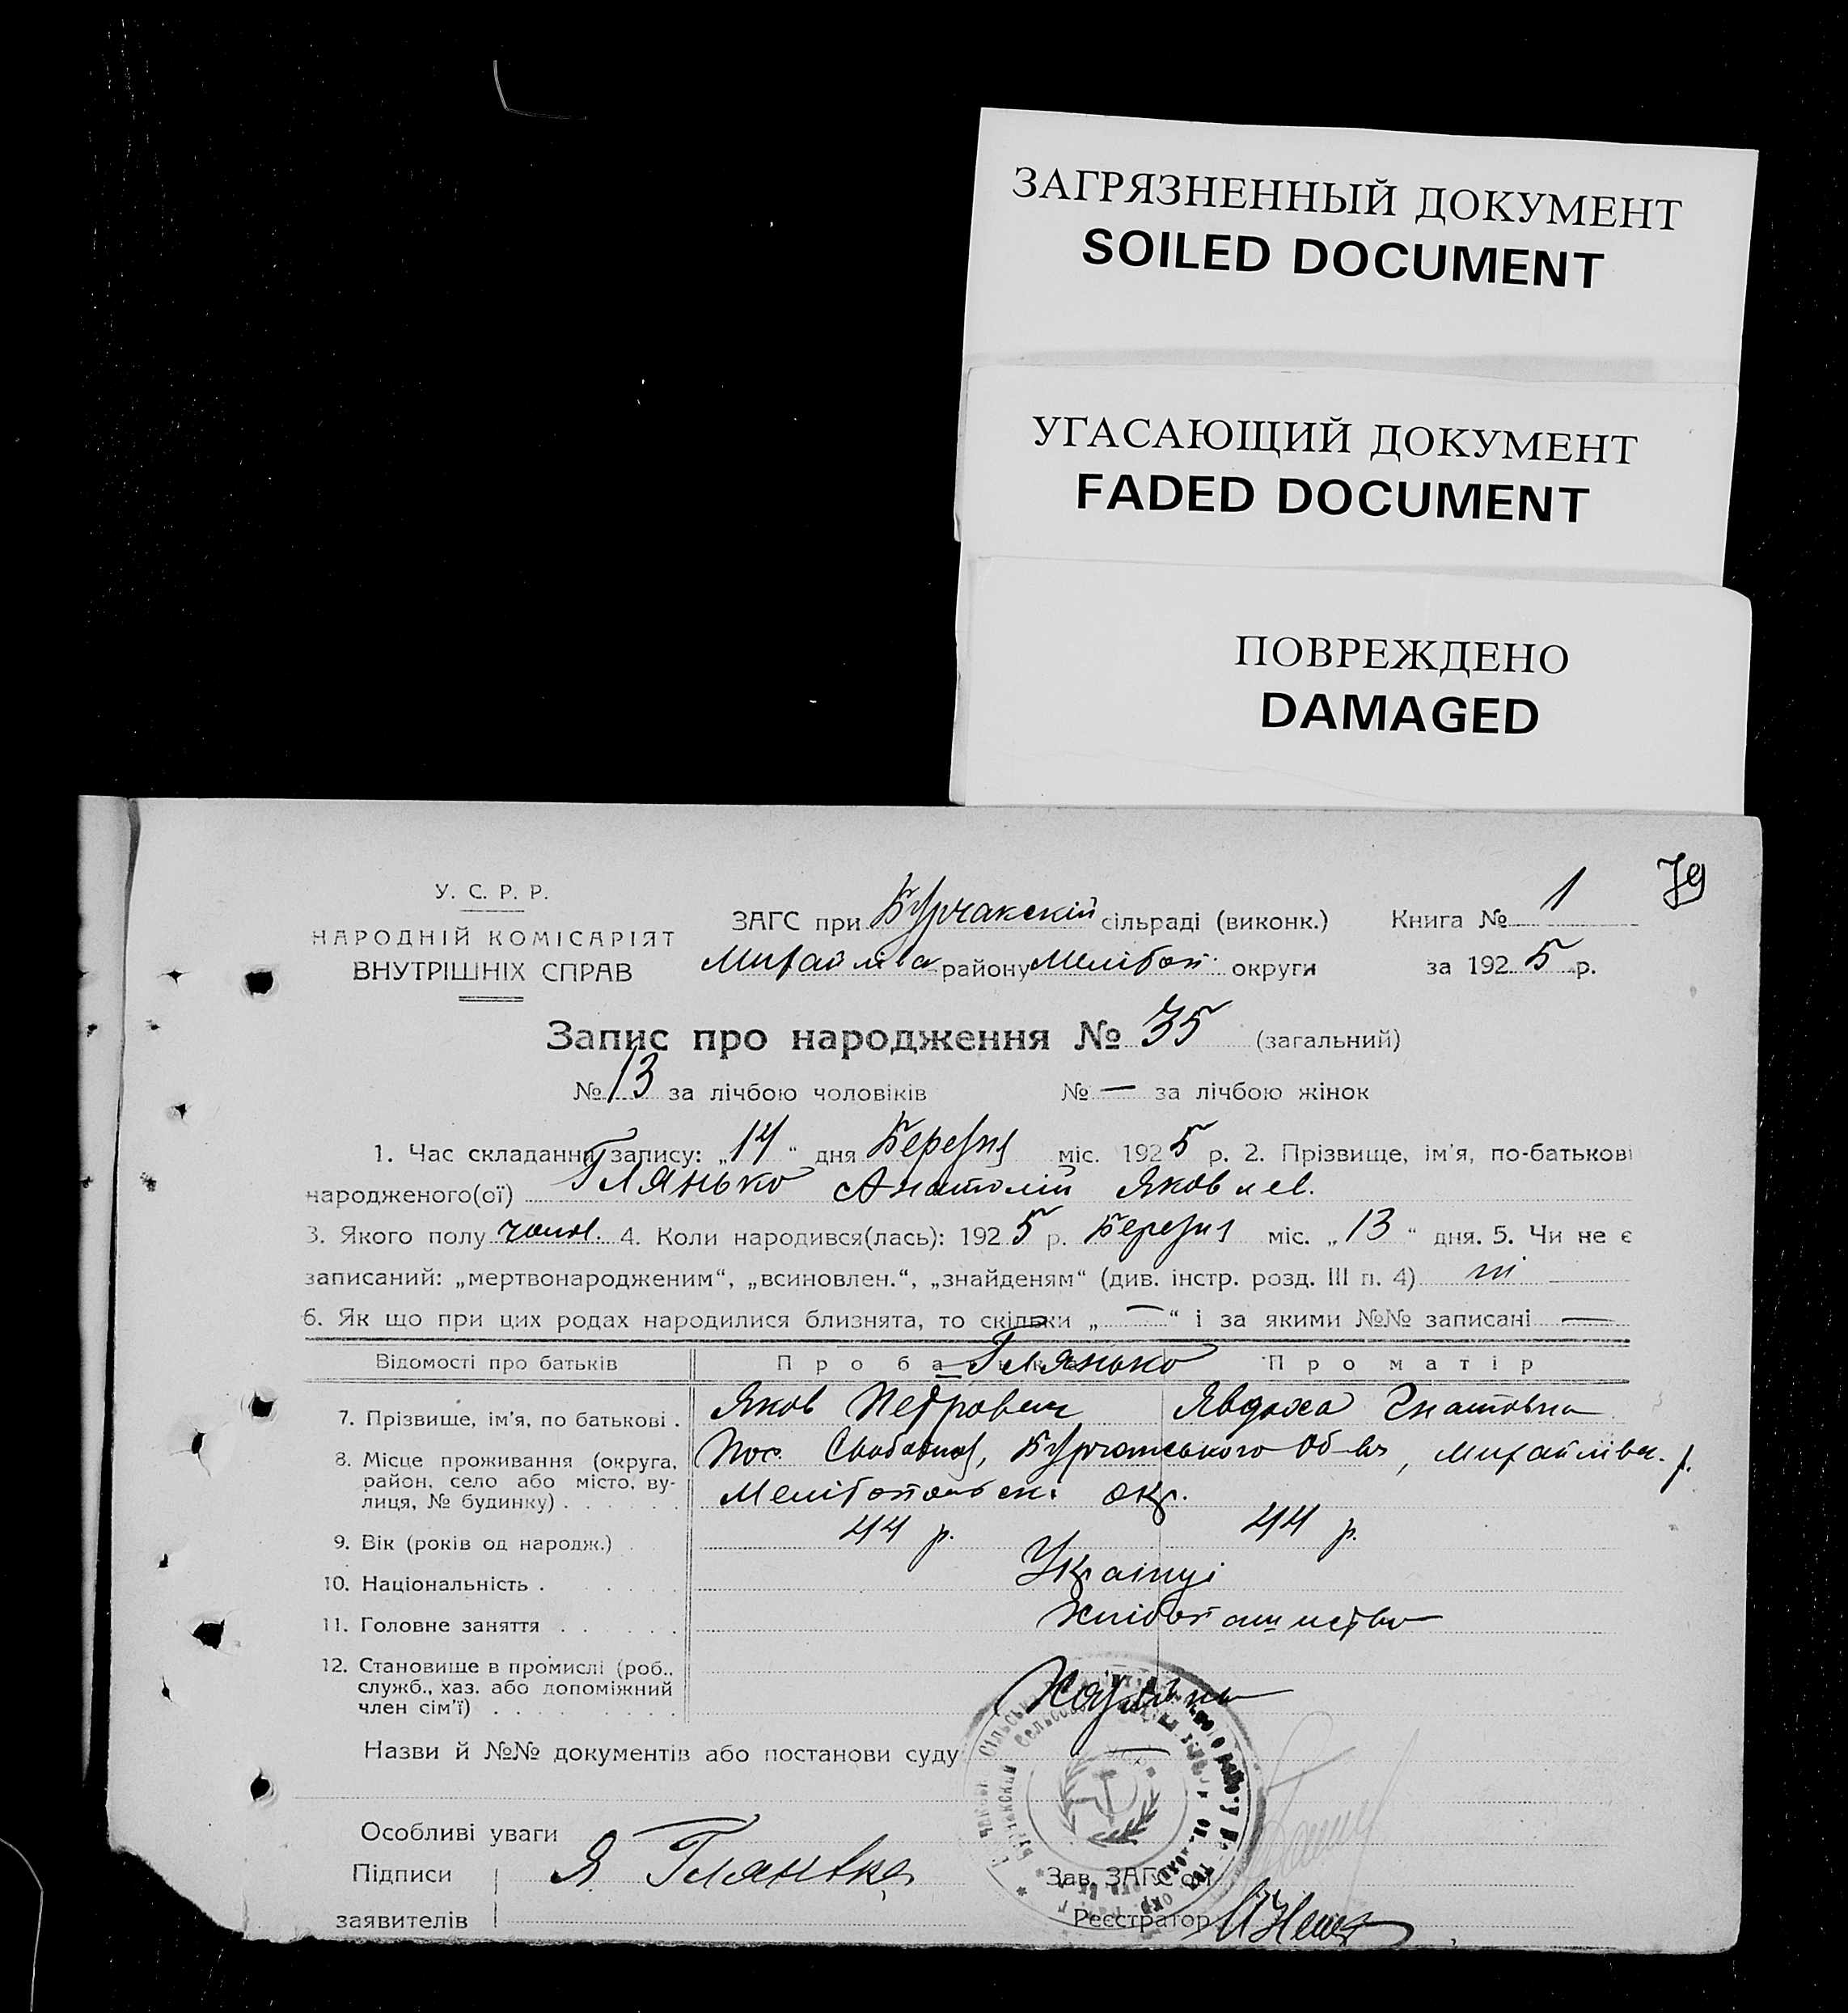 ЗАГРЯЗНЕННЫЙ ДОКУМЕНТ
SOILED DOCUMENT
УГАСАЮЩИЙ ДОКУМЕНТ
FADED DOCUMENT
ПОВРЕЖДЕНО
DAMAGED
79
У. С. Р. Р.
НАРОДНІЙ КОМІСАРІЯТ
ВНУТРІШНІХ СПРАВ
ЗАГС при Бурчакскій сільраді (виконк.) Книга № 1
Михайлівс. району Мелітоп. округи за 1925 р.
Запис про народження № 35 (загальний)
№ 13 за лічбою чоловіків № — за лічбою жінок
1. Час складання запису: „14“ дня Березня міс. 1925 р. 2. Прізвище, ім'я, по-батькові
народженого(ої) Глянько Анатолій Яковлев.
3. Якого полу чолов. 4. Коли народився(лась): 1925 р. Березня міс. „13“ дня. 5. Чи не є
записаний: „мертвонародженим“, „всиновлен.“, „знайденям“ (див. інстр. розд. III п. 4) ні
6. Як що при цих родах народилися близнята, то скільки „—“ і за якими №№ записані —
Відомості про батьків Про батька Глянько Про матір
7. Прізвище, ім'я, по батькові . Яков Петрович Явдоха Гнатовна
8. Місце проживання (округа, район, село або місто, вулиця, № будинку) . Пос. Свободний, Бурчатського Об-ва, Михайлівск. р.
Мелітопольск. окр.
9. Вік (років од народж.) . 44 р. 44 р.
10. Національність . Українці
11. Головне заняття . . Хліборашиство
12. Становище в промислі (роб.,
служб., хаз. або допоміжний
член сім'ї) . Хазяїни
Назви й №№ документів або постанови суду
Особливі уваги
Підписи
заявителів
Я. Глянько
Зав. ЗАГС'ом
Реєстратор